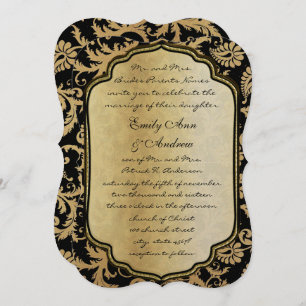 Mr. and Mrs.
Brides Parents Names
invite you to celebrate the
marriage of their daughter
Emily Ann
& Andrew
son of Mr. and Mrs.
Patrick K. Anderson
saturday the fifth of november
two thousand and eleven
three o'clock in the afternoon
church of Christ
100 church street
city, state 45617
reception to follow